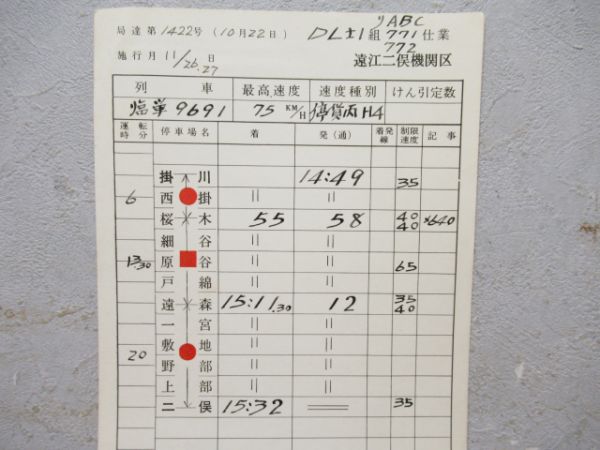 局達第1422号(10月22日) DL士1組 ABC 771 772 仕業
施行月11/26.27日 遠江二俣機関区
列車 最高速度 速度種別 けん引定数
臨単9691 75 KM/H 停貨丙H4
運転時分 停車場名 着 発(通) 着発線 制限速度 記事
掛川 14:49 35
6 西掛 〃 〃
桜木 55 58 40 40 ×640
細谷 〃 〃
13.30 原谷 〃 〃 65
戸綿 〃 〃
遠森 15:11.30 12 35 40
一宮 〃 〃
20 敷地 〃 〃
野部 〃 〃
上部 〃 〃
二俣 15:32 35